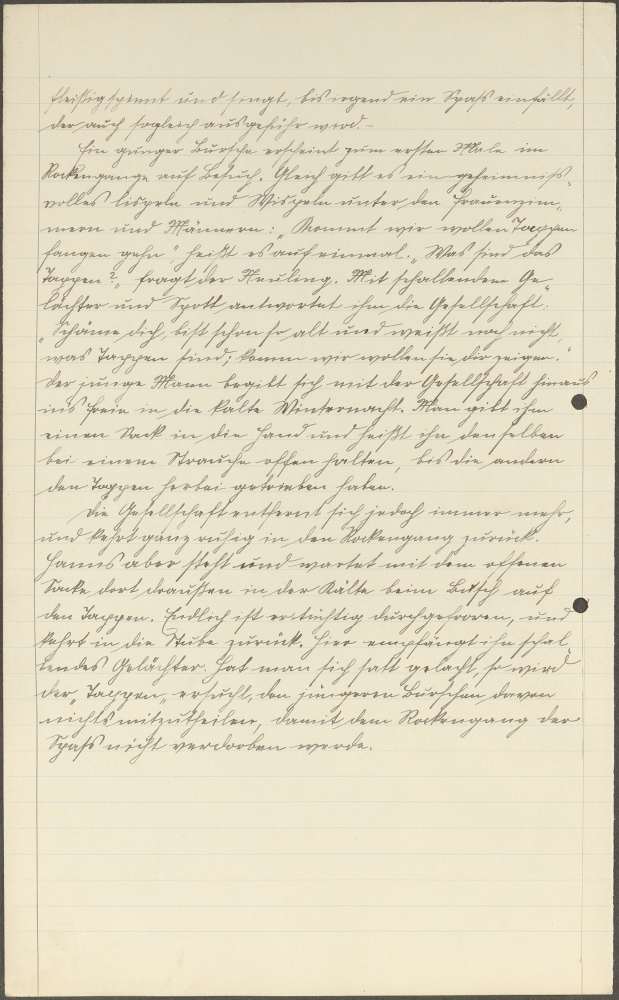 fleißig spinnt und singt, bis irgend ein Spaß einfällt,
der auch sogleich ausgeführ wird. –
Ein gunger Bursche erscheint zum ersten Male im
Rockengange auf Besuch. Gleich gibt es ein geheimniß„
volles lispeln und Wispeln unter den Frauenzim„
mern und Männern: „Kommt wir wollen Tappen
fangen gehn“, heißt es auf einmal. „Was sind das
Tappen?“, fragt der Neuling. Mit schallendem Ge„
lächter und Spott antwortet ihm die Gesellschaft:
„Schäme dich, bist schon so alt und weißt noch nicht,
was Tappen sind; komm wir wollen sie dir zeigen.“
Der junge Mann begibt sich mit der Gesellschaft hinaus
ins freie in die kalte Winternacht. Man gibt ihm
einen Sack in die Hand und heißt ihn denselben
bei einem Strauche offen halten, bis die andern
den Tappen herbei getrieben haben.
Die Gesellschaft entfernt sich jedoch immer mehr,
und kehrt ganz ruhig in den Rockengang zurück.
Hanns aber steht und wartet mit dem offenen
Sacke dort draußen in der Kälte beim Busch auf
den Tappen. Endlich ist er tüchtig durchgefroren, und
kehrt in die Stube zurück. Hier empfängt ihn schal„
lendes Gelächter. Hat man sich satt gelacht, so wird
der „Tappen“ ersucht, den jüngeren Burschen davon
nichts mitzutheilen, damit dem Rockengang der
Spaß nicht verdorben werde.